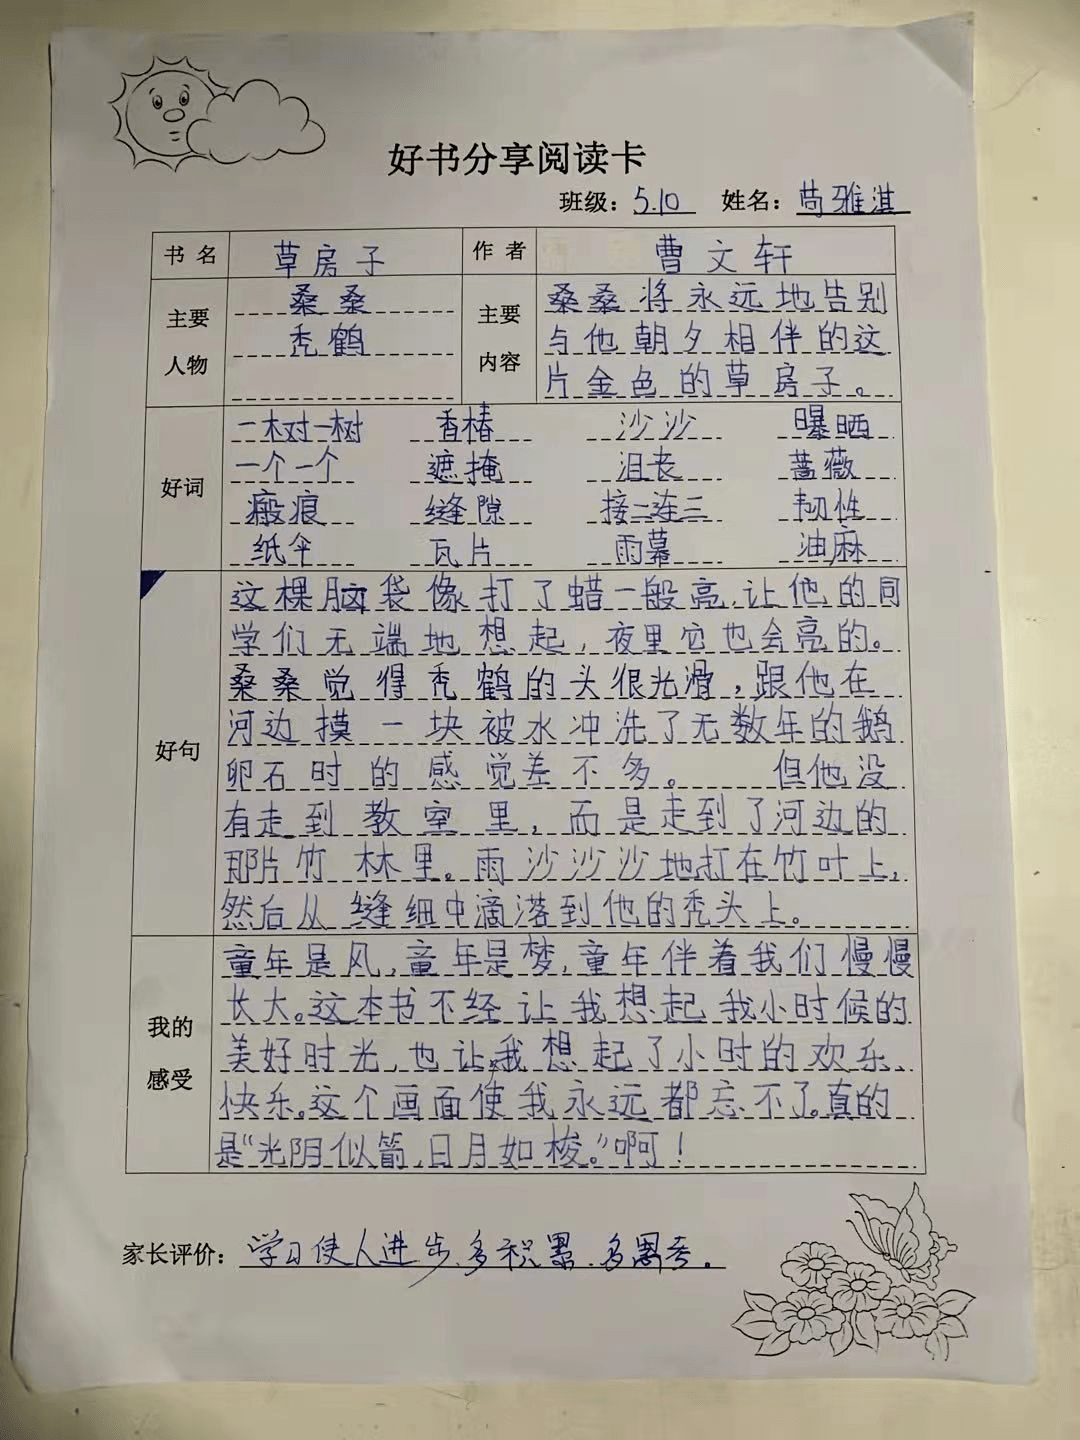 好书分享阅读卡
班级：5.10 姓名：苘雅淇
书名 草房子 作者 曹文轩
主要人物 桑桑
秃鹤
主要内容 桑桑将永远地告别
与他朝夕相伴的这
片金色的草房子。
好词
一树一树 香椿 沙沙 曝晒
一个一个 遮掩 沮丧 蔷薇
瘢痕 缝隙 接二连三 韧性
纸伞 瓦片 雨幕 油麻
好句
这棵脑袋像打了蜡一般亮,让他的同
学们无端地想起,夜里它也会亮的。
桑桑觉得秃鹤的头很光滑,跟他在
河边摸一块被水冲洗了无数年的鹅
卵石时的感觉差不多。 但他没
有走到教室里,而是走到了河边的
那片竹林里。雨沙沙沙地打在竹叶上,
然后从缝细中滴落到他的秃头上。
我的感受
童年是风,童年是梦,童年伴着我们慢慢
长大。这本书不经让我想起我小时候的
美好时光,也让我想起了小时的欢乐、
快乐。这个画面使我永远都忘不了。真的
是“光阴似箭,日月如梭。”啊!
家长评价：学习使人进步、多积累、多思考。